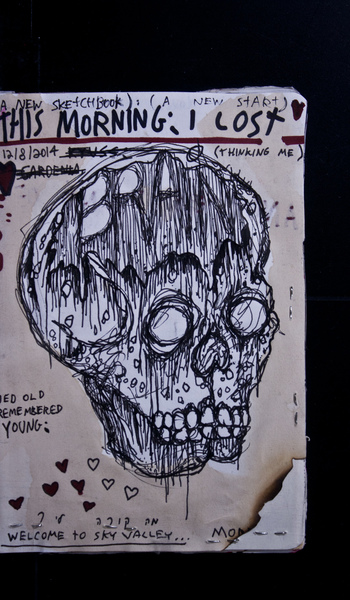 A NEW SKETCHBOOK ) : ( A NEW START )
THIS MORNING: I LOST
12/8/2014 (THINKING ME)
BRAIN
IED OLD
REMEMBERED
YOUNG:
מה קורה לי ?
WELCOME TO SKY VALLEY...